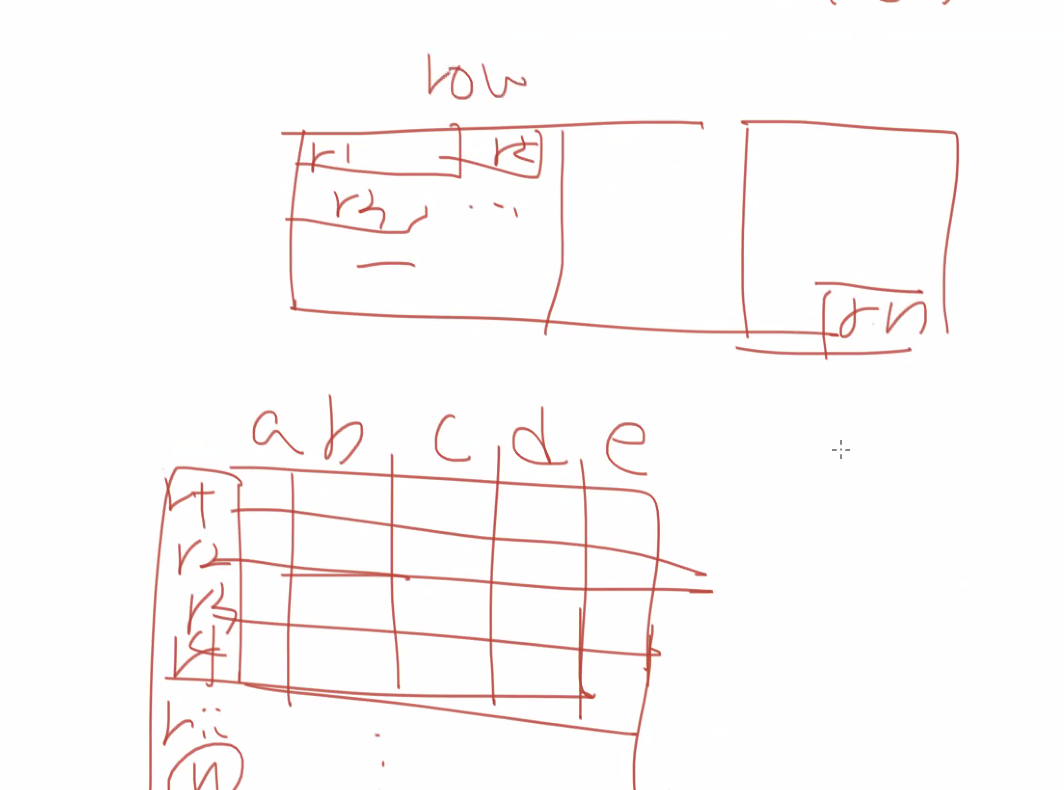 row
r1 r2
r3 ...
rn
a b c d e
r1
r2
r3
r4
r
n